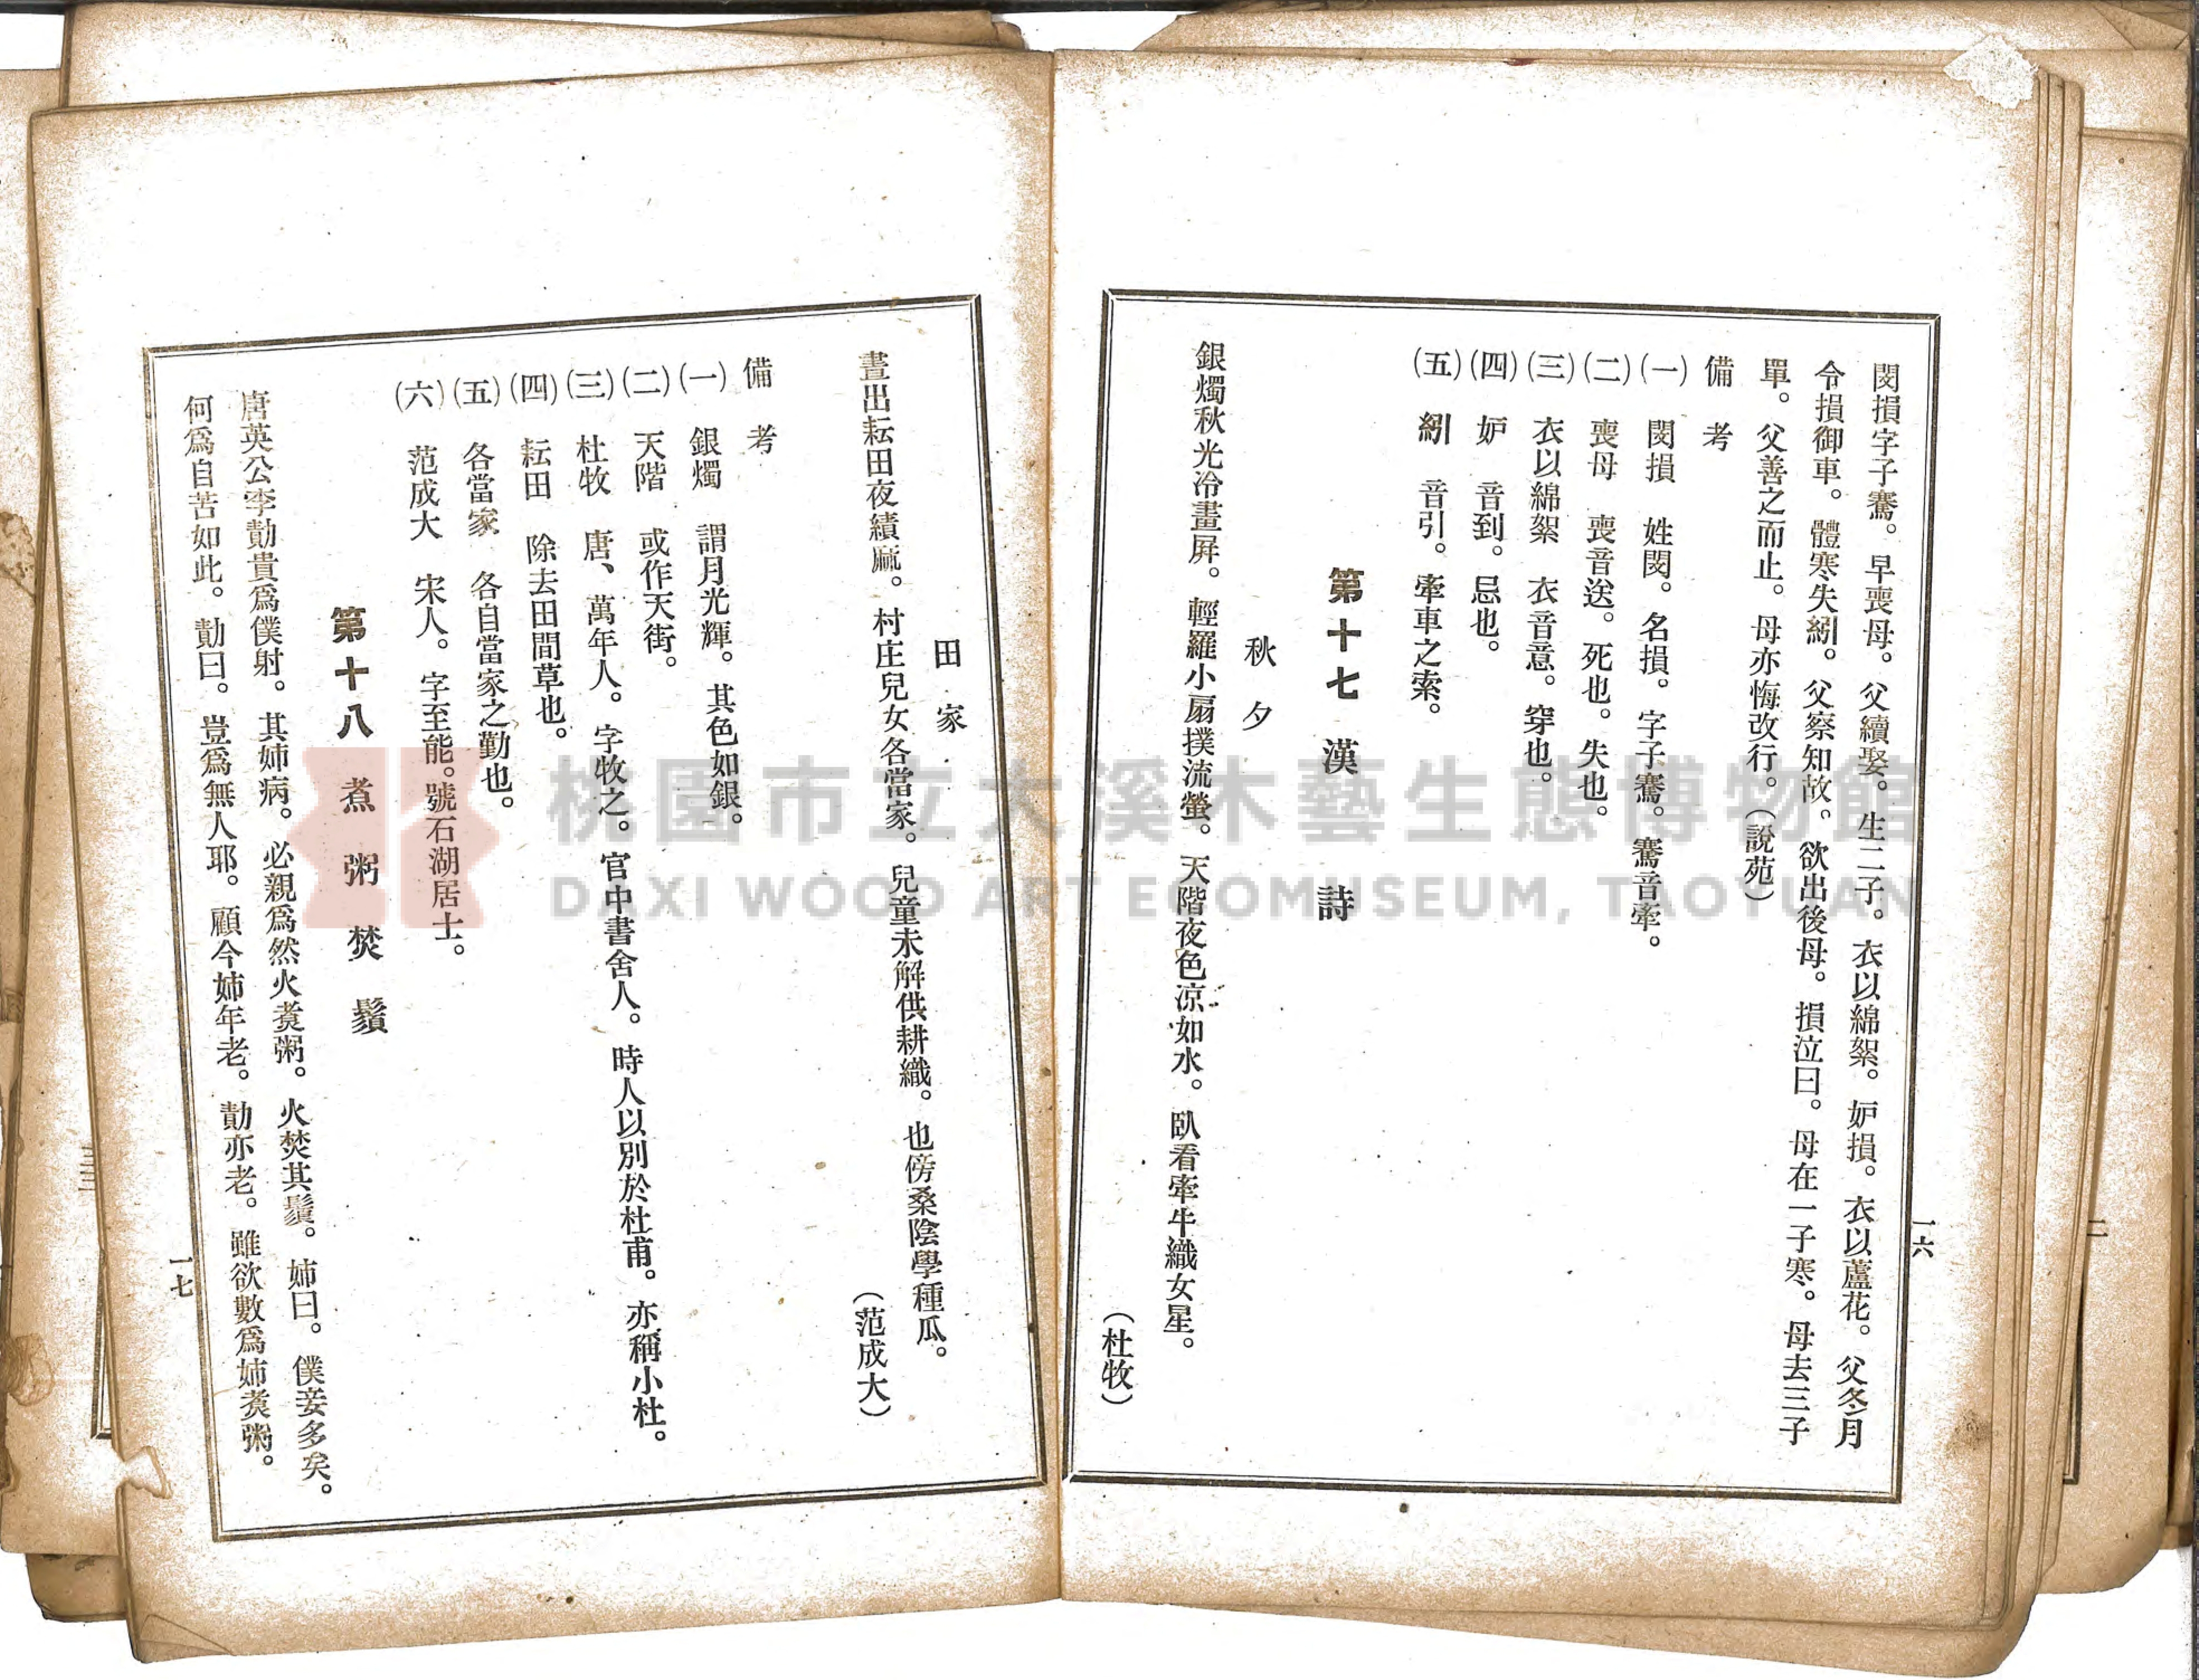 閔損字子騫。早喪母。父續娶。生二子。衣以綿絮。妒損。衣以蘆花。父冬月
令損御車。體寒失紖。父察知故。欲出後母。損泣曰。母在一子寒。母去三子
單。父善之而止。母亦悔改行。(說苑)
備考
(一) 閔損 姓閔。名損。字子騫。騫音牽。
(二) 喪母 喪音送。死也。失也。
(三) 衣以綿絮 衣音意。穿也。
(四) 妒 音到。忌也。
(五) 紖 音引。牽車之索。
第十七 漢詩
秋夕
銀燭秋光冷畫屏。輕羅小扇撲流螢。天階夜色凉如水。臥看牽牛織女星。
(杜牧)
一六
田家
晝出耘田夜績麻。村庄兒女各當家。兒童未解供耕織。也傍桑陰學種瓜。
(范成大)
備考
(一) 銀燭 謂月光輝。其色如銀。
(二) 天階 或作天街。
(三) 杜牧 唐、萬年人。字牧之。官中書舍人。時人以別於杜甫。亦稱小杜。
(四) 耘田 除去田間草也。
(五) 各當家 各自當家之勤也。
(六) 范成大 宋人。字至能。號石湖居士。
第十八 煮粥焚鬚
唐英公李勣貴爲僕射。其姉病。必親爲然火煑粥。火焚其鬚。姉曰。僕妾多矣。
何爲自苦如此。勣曰。豈爲無人耶。顧今姉年老。勣亦老。雖欲數爲姉煑粥。
一七
桃園市立大溪木藝生態博物館
DAXI WOOD ART ECOMUSEUM, TAOYUAN